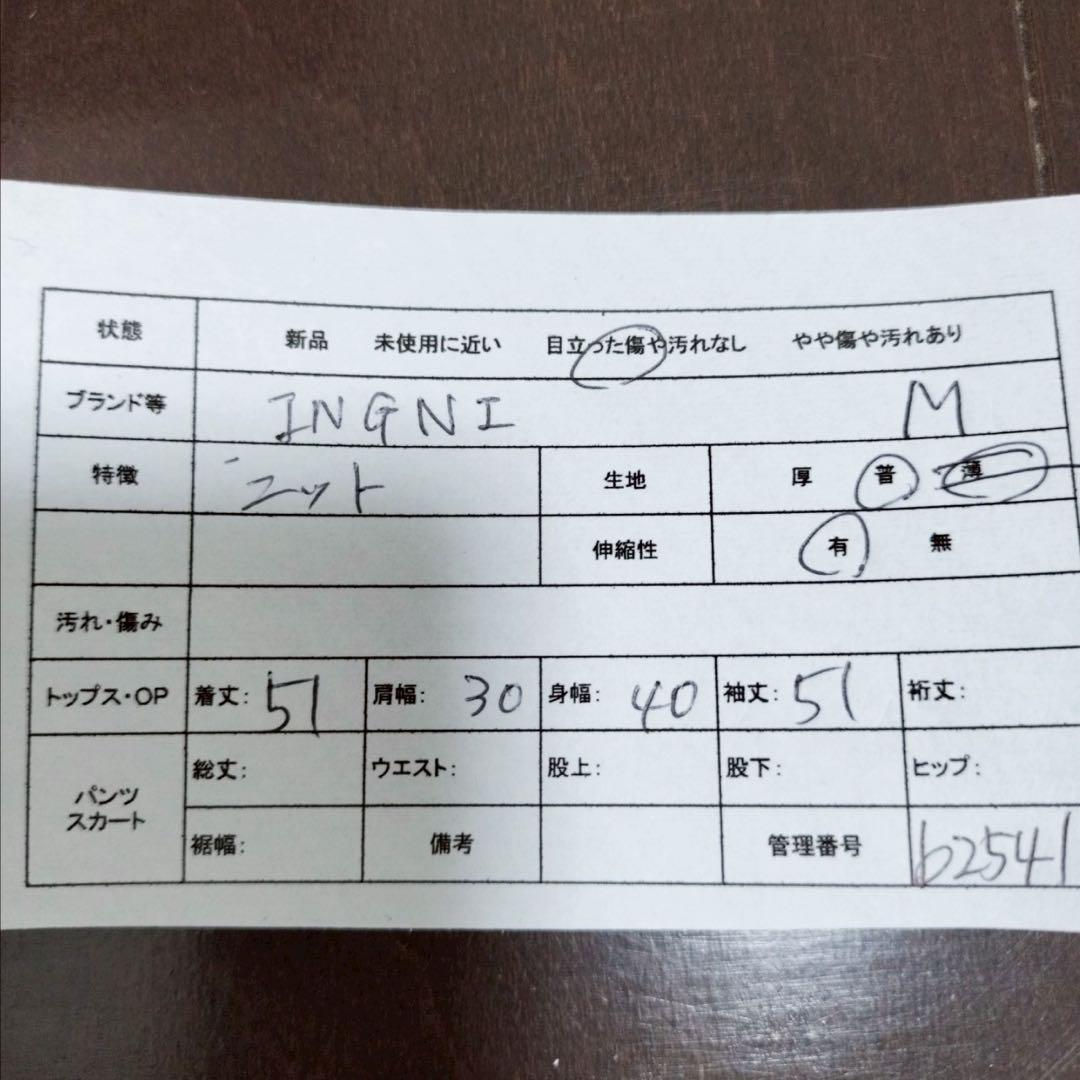 状態 新品 未使用に近い 目立った傷や汚れなし やや傷や汚れあり
ブランド等 INGNI M
特徴 ニット 生地 厚 普 薄
伸縮性 有 無
汚れ・傷み
トップス・OP 着丈: 51 肩幅: 30 身幅: 40 袖丈: 51 裄丈:
パンツ スカート 総丈: ウエスト: 股上: 股下: ヒップ:
裾幅: 備考 管理番号 62541